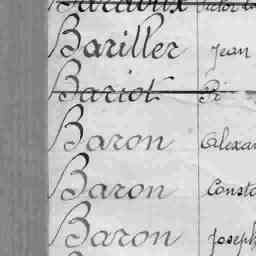 Bariller Jean
Bariot Pi
Baron Alexan
Baron Consta
Baron Joseph